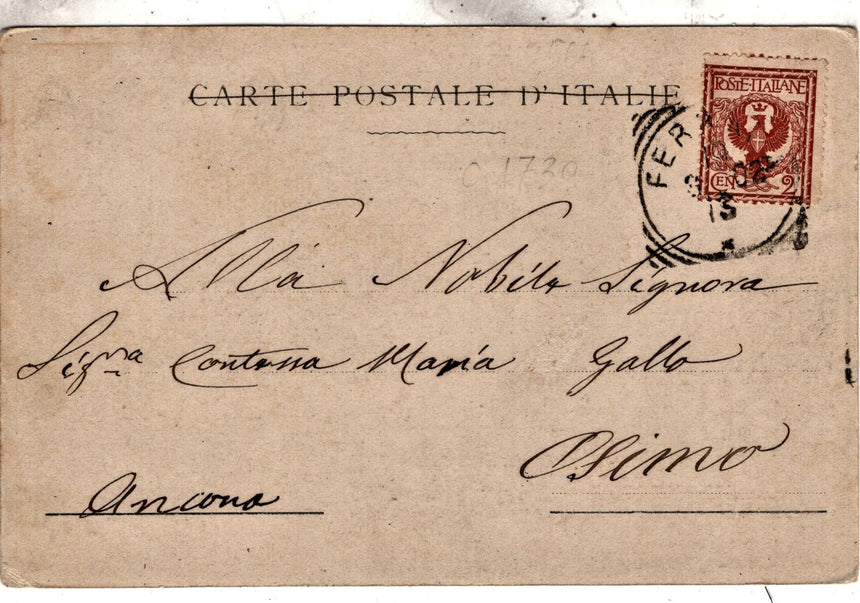 CARTE POSTALE D'ITALIE
POSTE·ITALIANE
CEN 2
FER
02
13
C 1720
Alla Nobile Signora
Sigra Contessa Maria Gallo
Osimo
Ancona